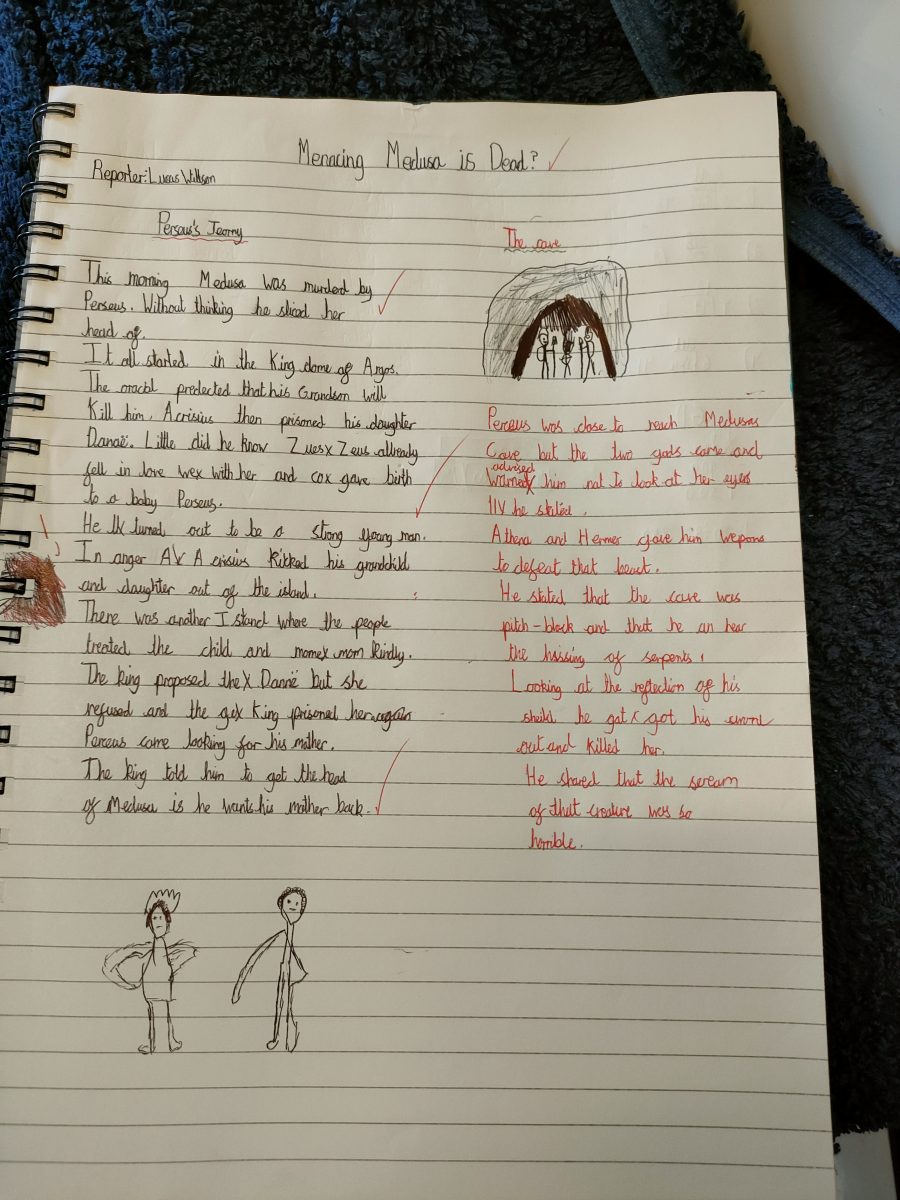 Menacing Medusa is Dead?
Reporter: Lucas Willson
Perseus's Jeorny
This morning Medusa was murderd by
Perseus. Without thinking he sliced her
head of.
It all started in the King dome of Argos.
The oracal predected that his Grandson will
Kill him. Acrisius then prisoned his daughter
Danaë. Little did he know Zuesx Zeus already
fell in love wex with her and cox gave birth
to a baby Perseus.
He IX turned out to be a strong young man.
In anger AX Acrisius Kikked his grandchild
and daughter out of the island.
There was another Island where the people
treated the child and momex mom kindly.
The king proposed thex Dannë but she
refused and the gix King prisoned her again
Perceus come looking for his mother.
The king told him to get the head
of Medusa is he wants his mother back.
The cave
Perceus was close to reach Medusas
Cave but the two gods came and
advised
warnedx him not to look at her eyes
he stated.
Athena and Hermer gave him wepons
to defeat that beact.
He stated that the cave was
pitch-black and that he an hear
the hissing of serpents.
Looking at the reflection of his
sheild he gatx got his
out and killed her.
He shared that the scream
of that creature was so
horrible.